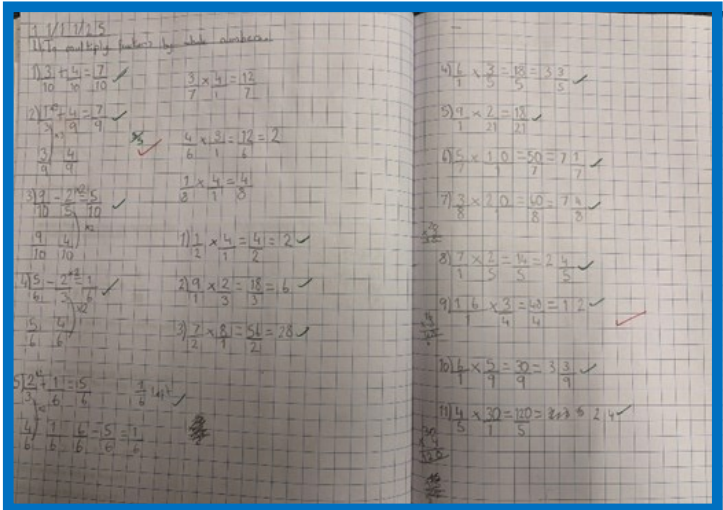 11/11/25
LI: To multiply fractions by whole numbers.
1) 3/10 + 4/10 = 7/10 ✓
2) 1/3 + 4/9 = 7/9 ✓
×3
3/9 4/9
5/5 ✓
3) 9/10 - 2/5 = 5/10 ✓
×2
9/10 4/10
4) 5/6 - 2/3 = 1/6 ✓
×2
5/6 4/6
5) 2/3 + 1/6 = 5/6 1/6 left ✓
4/6 1/6 6/6 - 5/6 = 1/6
3/7 × 4/1 = 12/7
4/6 × 3/1 = 12/6 = 2
1/8 × 4/1 = 4/8
1) 1/2 × 4/1 = 4/2 = 2 ✓
2) 9/1 × 2/3 = 18/3 = 6 ✓
3) 7/2 × 8/1 = 56/2 = 28 ✓
4) 6/1 × 3/5 = 18/5 = 3 3/5 ✓
5) 9/1 × 2/21 = 18/21 ✓
6) 5/7 × 10/1 = 50/7 = 7 1/7 ✓
7) 3/8 × 20/1 = 60/8 = 7 4/8 ✓
8) 7/1 × 2/5 = 14/5 = 2 4/5 ✓
9) 16/1 × 3/4 = 48/4 = 12 ✓
10) 6/1 × 5/9 = 30/9 = 3 3/9 ✓
11) 4/5 × 30/1 = 120/5 = 24 ✓
30
× 4
120